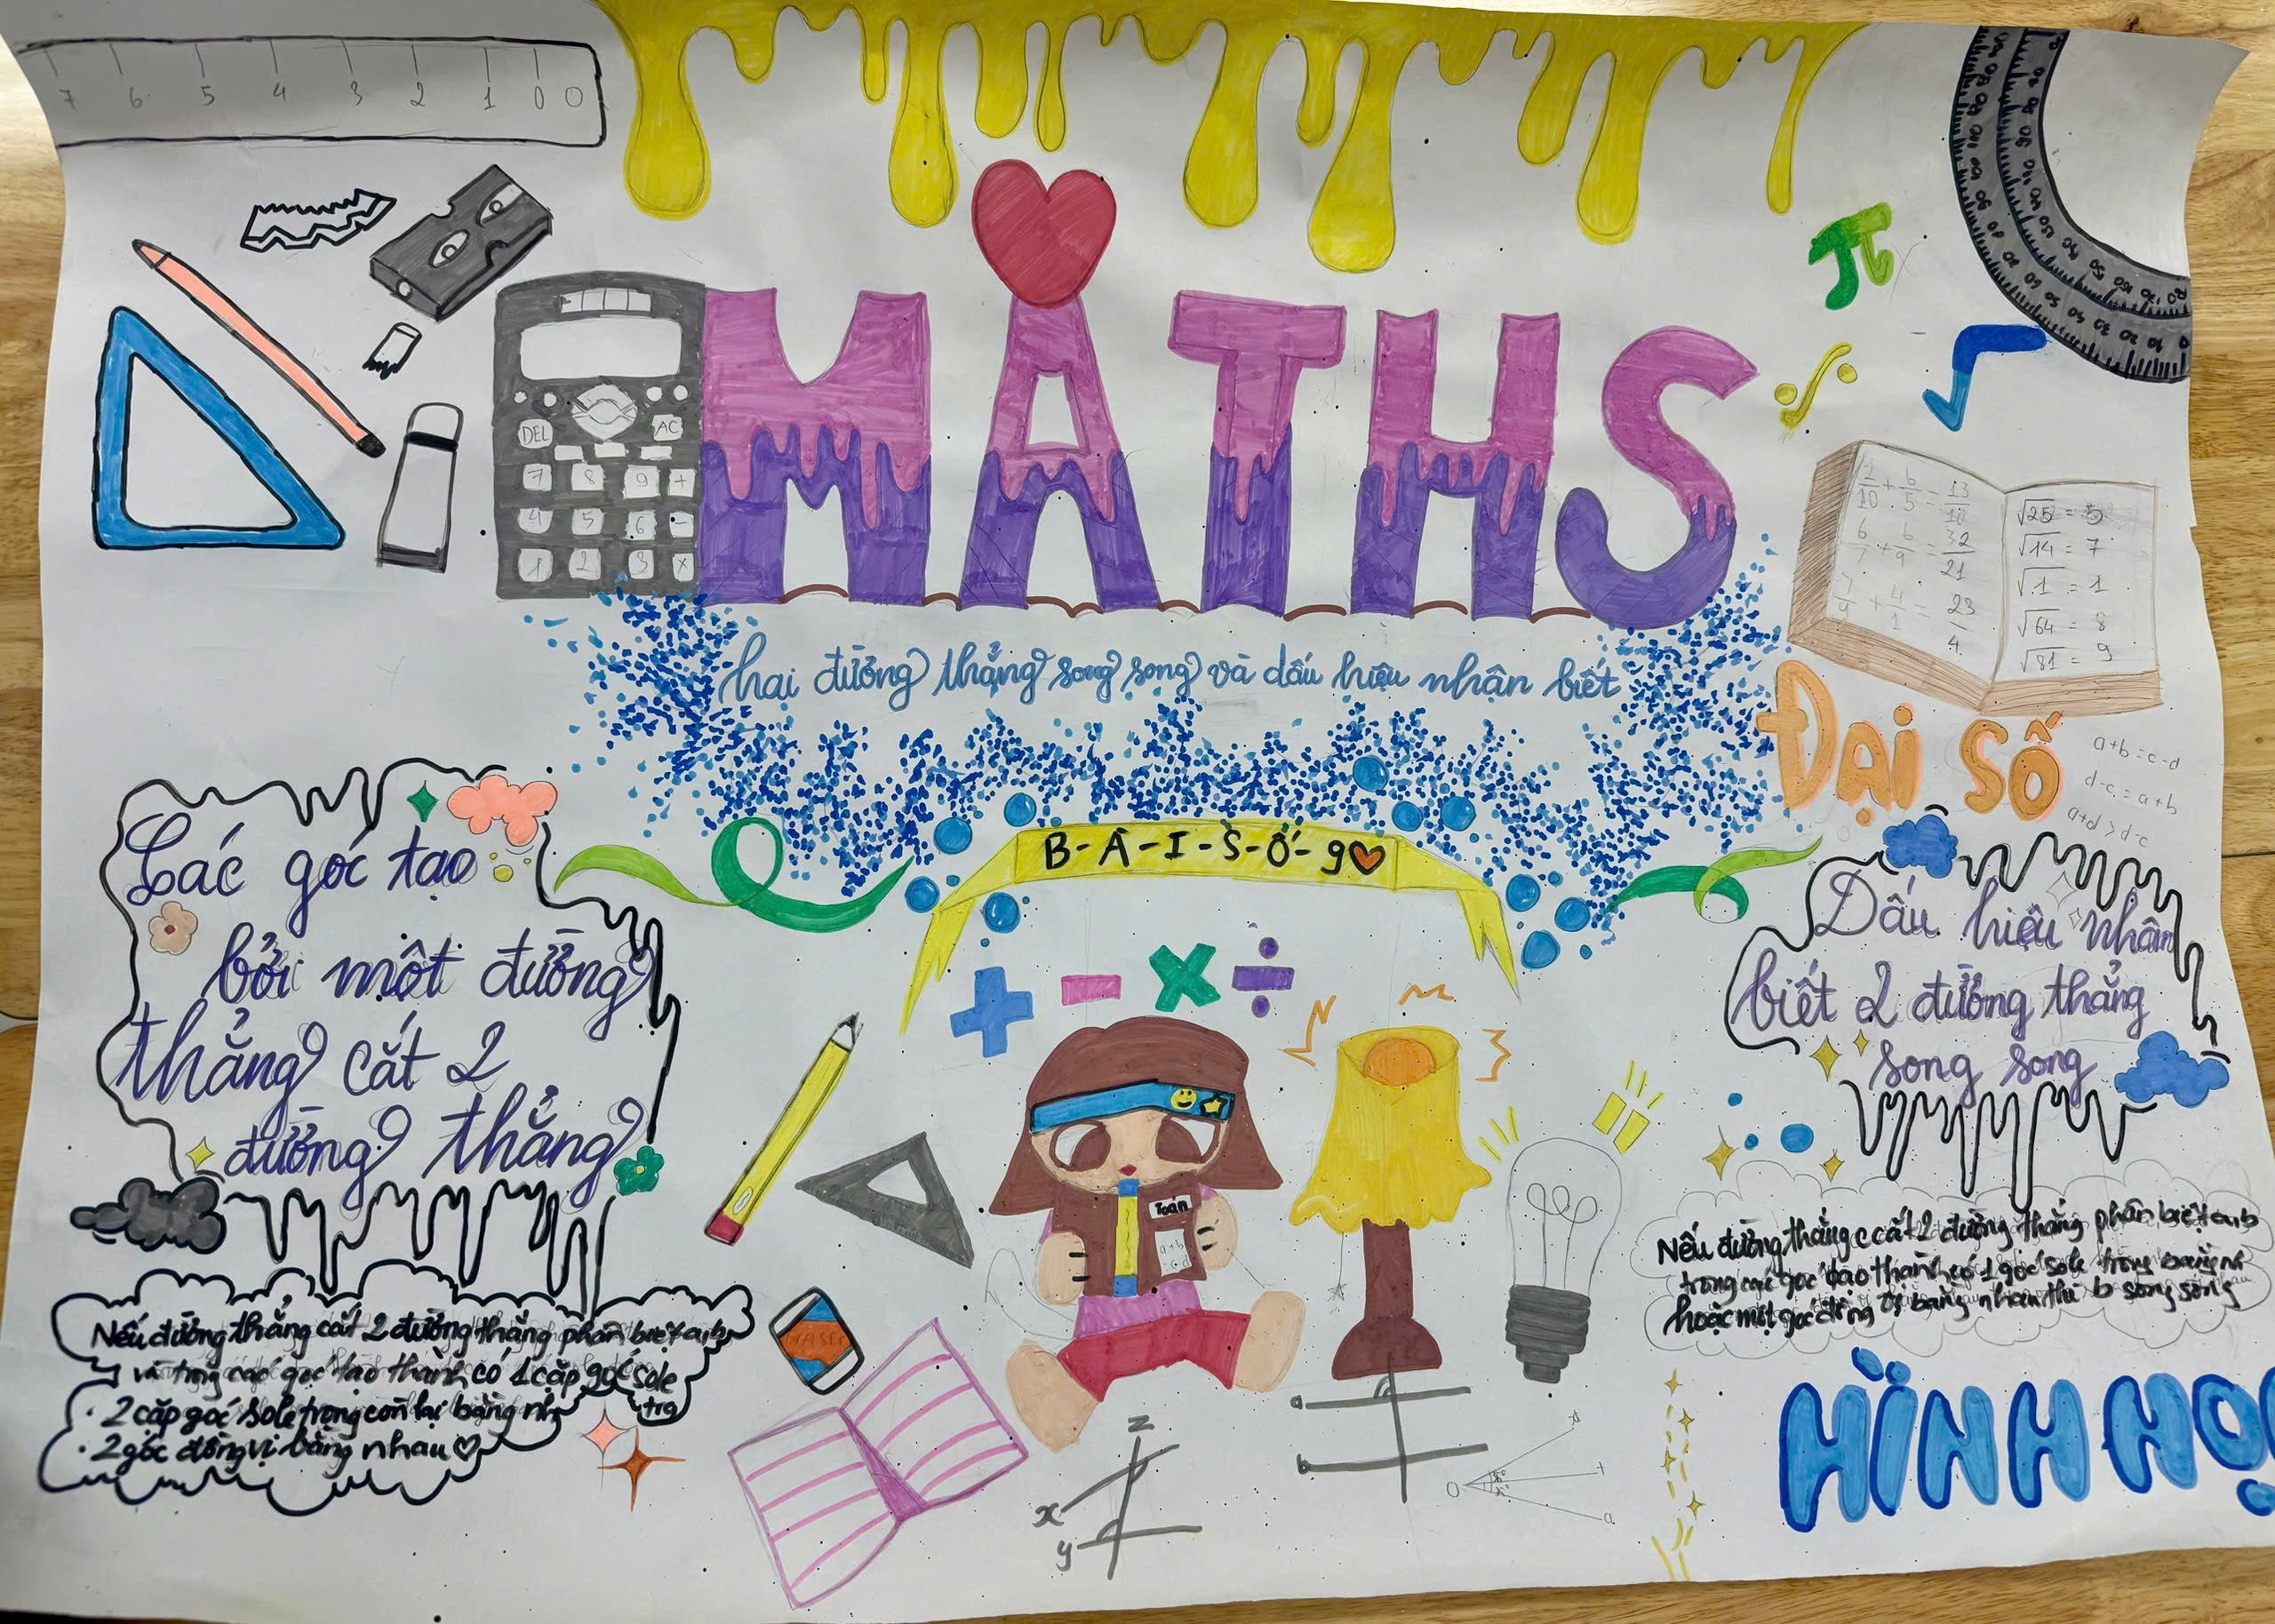 7 6 5 4 3 2 1 0 0
MATHS
DEL AC
7 8 9 +
4 5 6 -
1 2 3 ×
π
√
1/10 + 6/5 = 13/10
6/7 + 6/9 = 32/21
7/4 + 4/1 = 23/4
√25 = 5
√14 = 7
√1 = 1
√64 = 8
√81 = 9
hai đường thẳng song song và dấu hiệu nhận biết
ĐẠI SỐ
a+b=c-d
d-c=a+b
a+d>d-c
B-À-I-S-Ố-9
+ - × ÷
Các góc tạo
bởi một đường
thẳng cắt 2
đường thẳng
Nếu đường thẳng cắt 2 đường thẳng phân biệt a,b
và trong các góc tạo thành có 1 cặp góc sole
trg
· 2 cặp góc sole trong còn lại bằng nh
· 2 góc đồng vị bằng nhau
Dấu hiệu nhận
biết 2 đường thẳng
song song
Nếu đường thẳng c cắt 2 đường thẳng phân biệt a,b
trong các góc tạo thành có 1 góc sole trong bằng n
hoặc một góc đồng vị bằng nhau thì b song song
Toán
a+b
ERASER
HÌNH HỌ
z
x
y
a
b
O
t
a